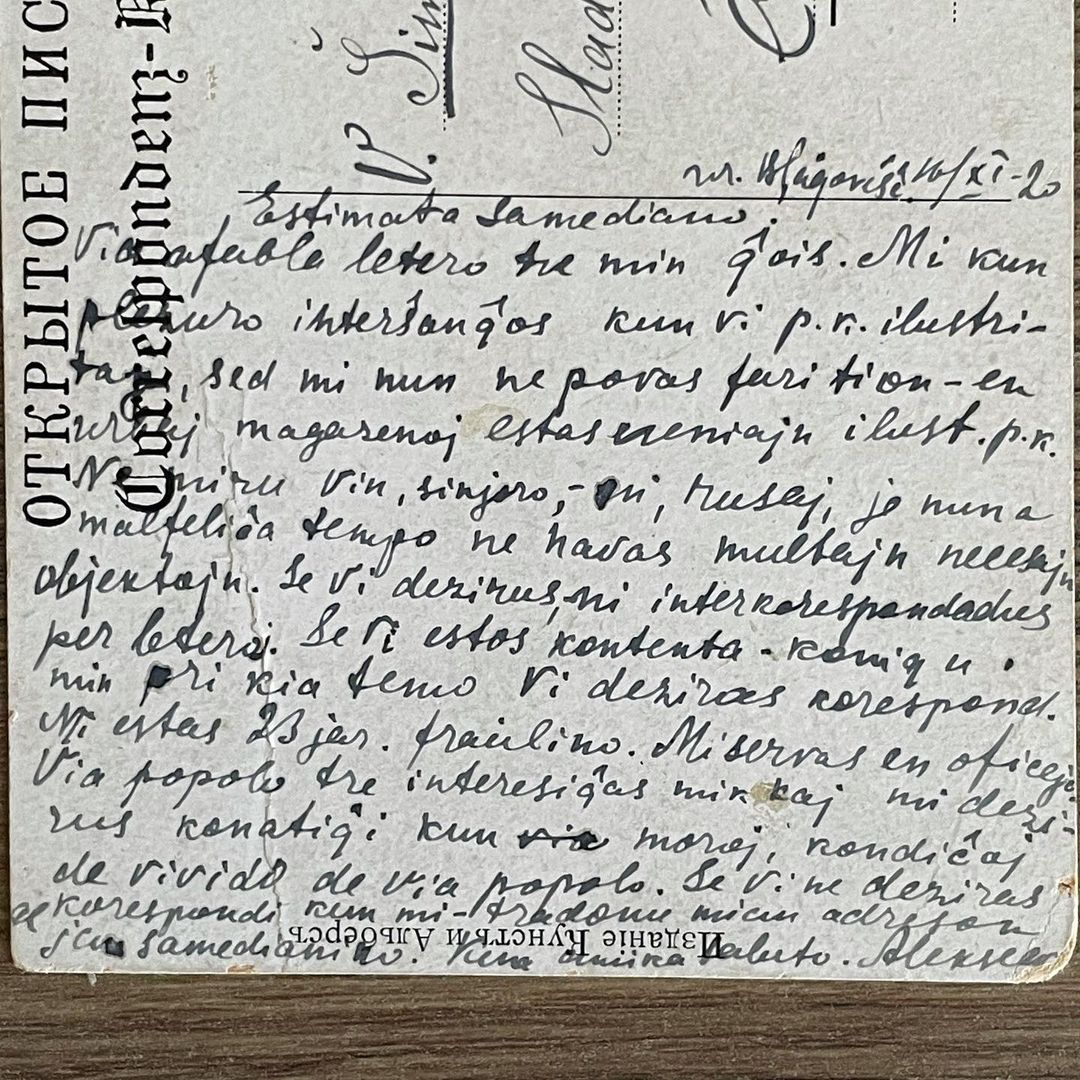 ОТКРЫТОЕ ПИС
Correspondenz-K
V. Šim
Slad
16/XI-20
Estimata samediano.
Via afabla letero tre min ĝois. Mi kun
plezuro interŝanĝos kun vi p.k. ilustri-
taj, sed mi nun ne povas fari tion - en
urbaj magazenoj estas neniajn ilust. p.k.
Ne miru Vin, sinjoro, - ni, rusaj, je nuna
malfeliĉa tempo ne havas multajn necesajn
objektojn. Se Vi dezirus, ni interkorespondadus
per leteroj. Se Vi estos kontenta - konigu
min pri kia temo Vi deziras korespond.
Mi estas 23 jar. fraŭlino. Mi servas en oficejo.
Via popolo tre interesiĝas min kaj mi dezi-
rus konatiĝi kun via moroj, kondiĉoj
de vivido de via popolo. Se Vi ne deziras
korespondi kun mi - tradonu mian adreson
al ian samedianino. Kun amika saluto.
Изданіе Кунстъ и Альберсъ